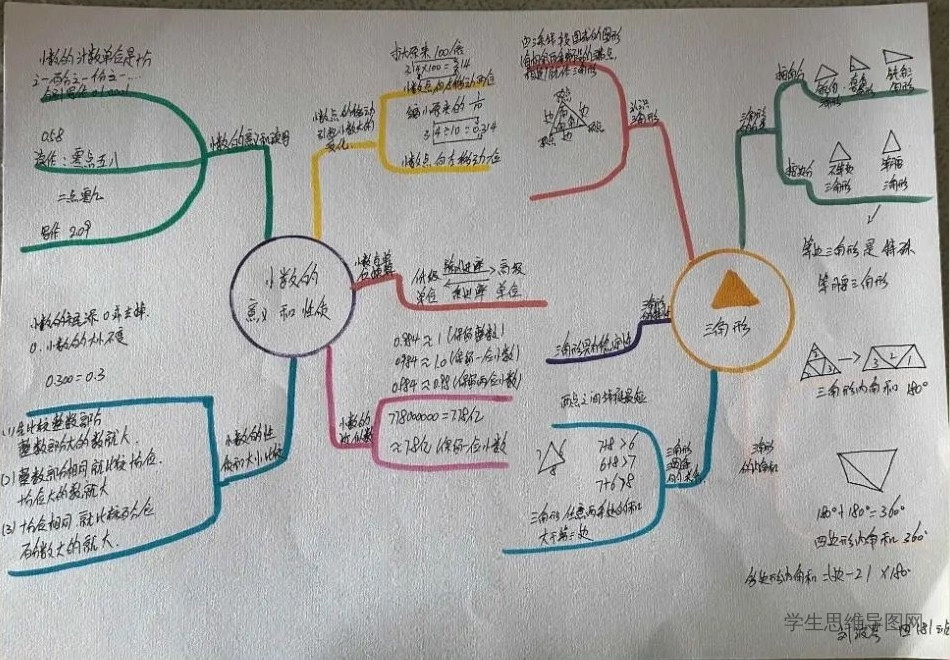 小数的计数单位是十分
之一百分之一份之一……
0.58
读作：零点五八
二点零九
写作 2.09
小数的意义和读写
扩大原来100倍
3.14×100=314
小数点向右移动两位
缩小原来的 1/10
3.14÷10=0.314
小数点向左移动一位
小数点的移动
引起小数大小的
变化
小数的
意义和性质
低级
单位
高级
单位
小数的末尾添0或去掉
0，小数的大小不变
0.300=0.3
(1)先比较整数部分
整数部分大的数就大。
(2)整数部分相同就比较十分位.
十分位大的数就大
(3)十分位相同，就比较百分位
百分数大的就大.
小数的性
质和大小比较
0.984≈1(保留整数)
0.984≈1.0(保留一位小数)
0.984≈0.98(保留两位小数)
778000000=7.78亿
≈7.8亿(保留一位小数)
小数的
近似数
由三条线段围成的图形
顶点
边
角
认识
三角形
三角形
三角形具有稳定性
两点之间线段最短
7+8>6
6+8>7
7+6>8
三角形任意两条边的和
大于第三边
三角形
三边
的关系
三角形
的分类
按角分
锐角
三角形
直角
三角形
钝角三
角形
按边分
不等边
三角形
等腰
三角形
等边三角形是特殊
等腰三角形
三角形内角和180°
三角形
的内角和
180°+180°=360°
四边形内角和360°
多边形内角和=(边-2)×180°
学生思维导图网